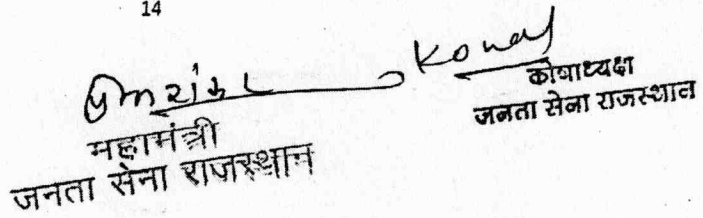 14
महामंत्री
जनता सेना राजस्थान
कोषाध्यक्ष
जनता सेना राजस्थान